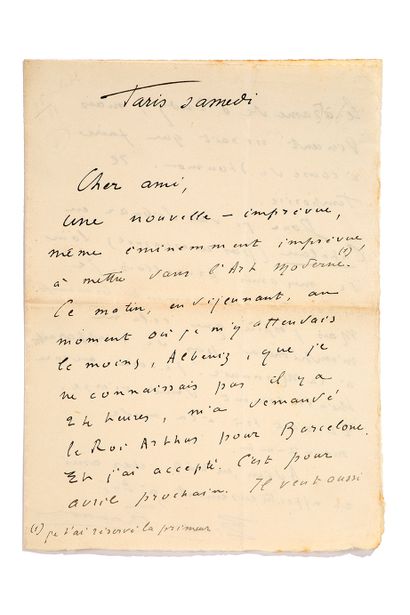 Paris samedi
Cher ami,
une nouvelle – imprévue,
même éminemment imprévue
à mettre dans l'Art moderne. (1)!
Ce matin, en déjeunant, au
moment où je m'y attendais
le moins, Albeniz, que je
ne connaissais pas il y a
24 heures, m'a demandé
le Roi Arthus pour Barcelone.
Et j'ai accepté. C'est pour
avril prochain. Il veut aussi
(1) je t'ai réservé la primeur